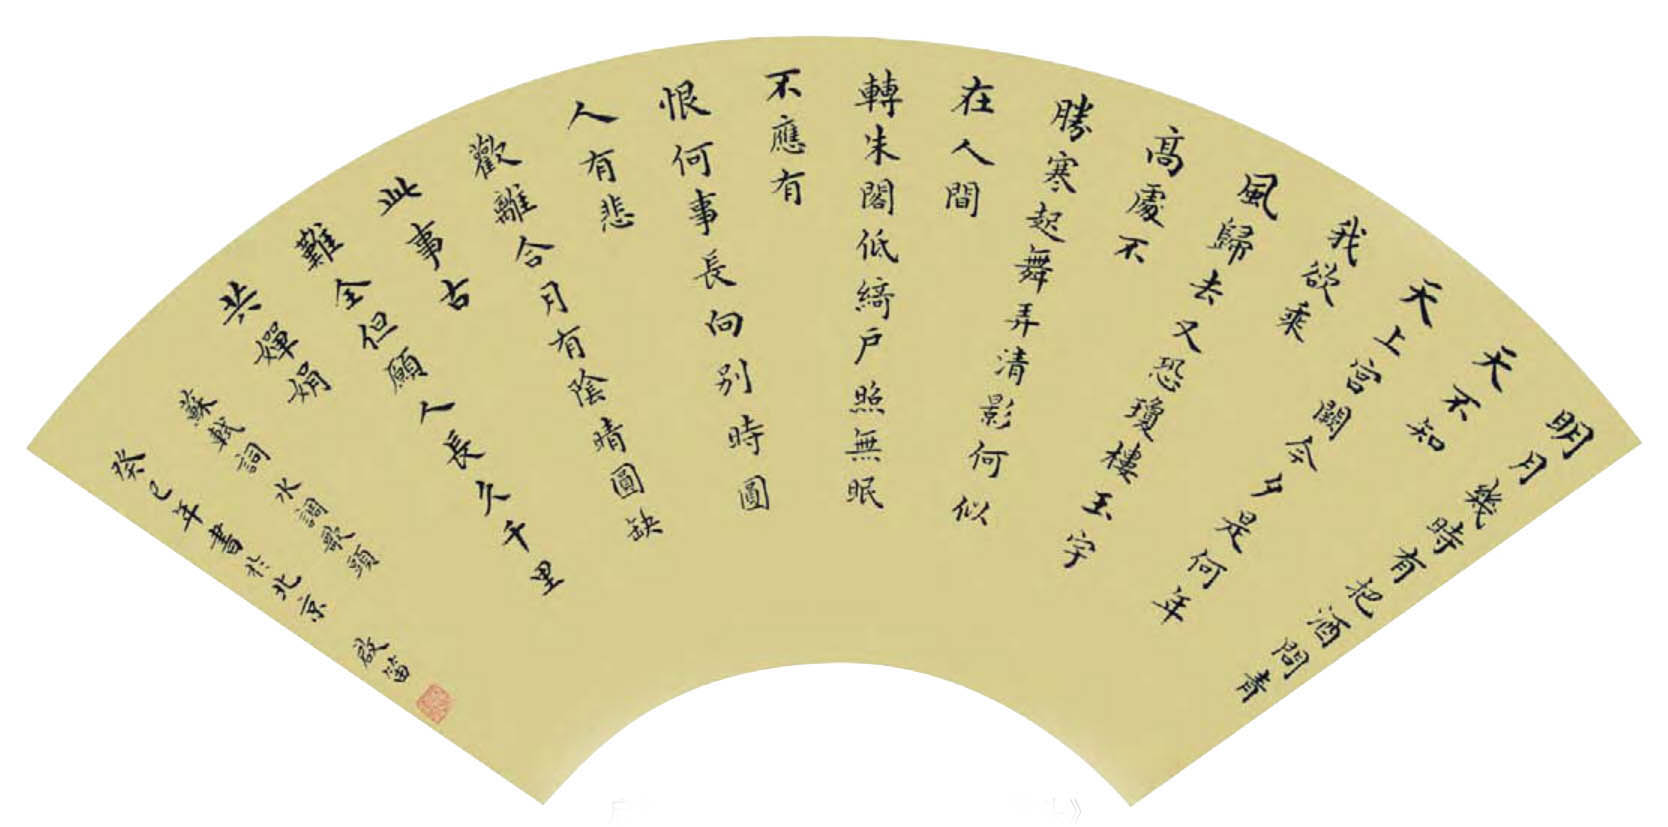 明月幾時有把酒問青
天不知
天上宮闕今夕是何年
我欲乘
風歸去又恐瓊樓玉宇
高處不
勝寒起舞弄清影何似
在人間
轉朱閣低綺戶照無眠
不應有
恨何事長向別時圓
人有悲
歡離合月有陰晴圓缺
此事古
難全但願人長久千里
共嬋娟
蘇軾詞水調歌頭
癸巳年書於北京 啟笛